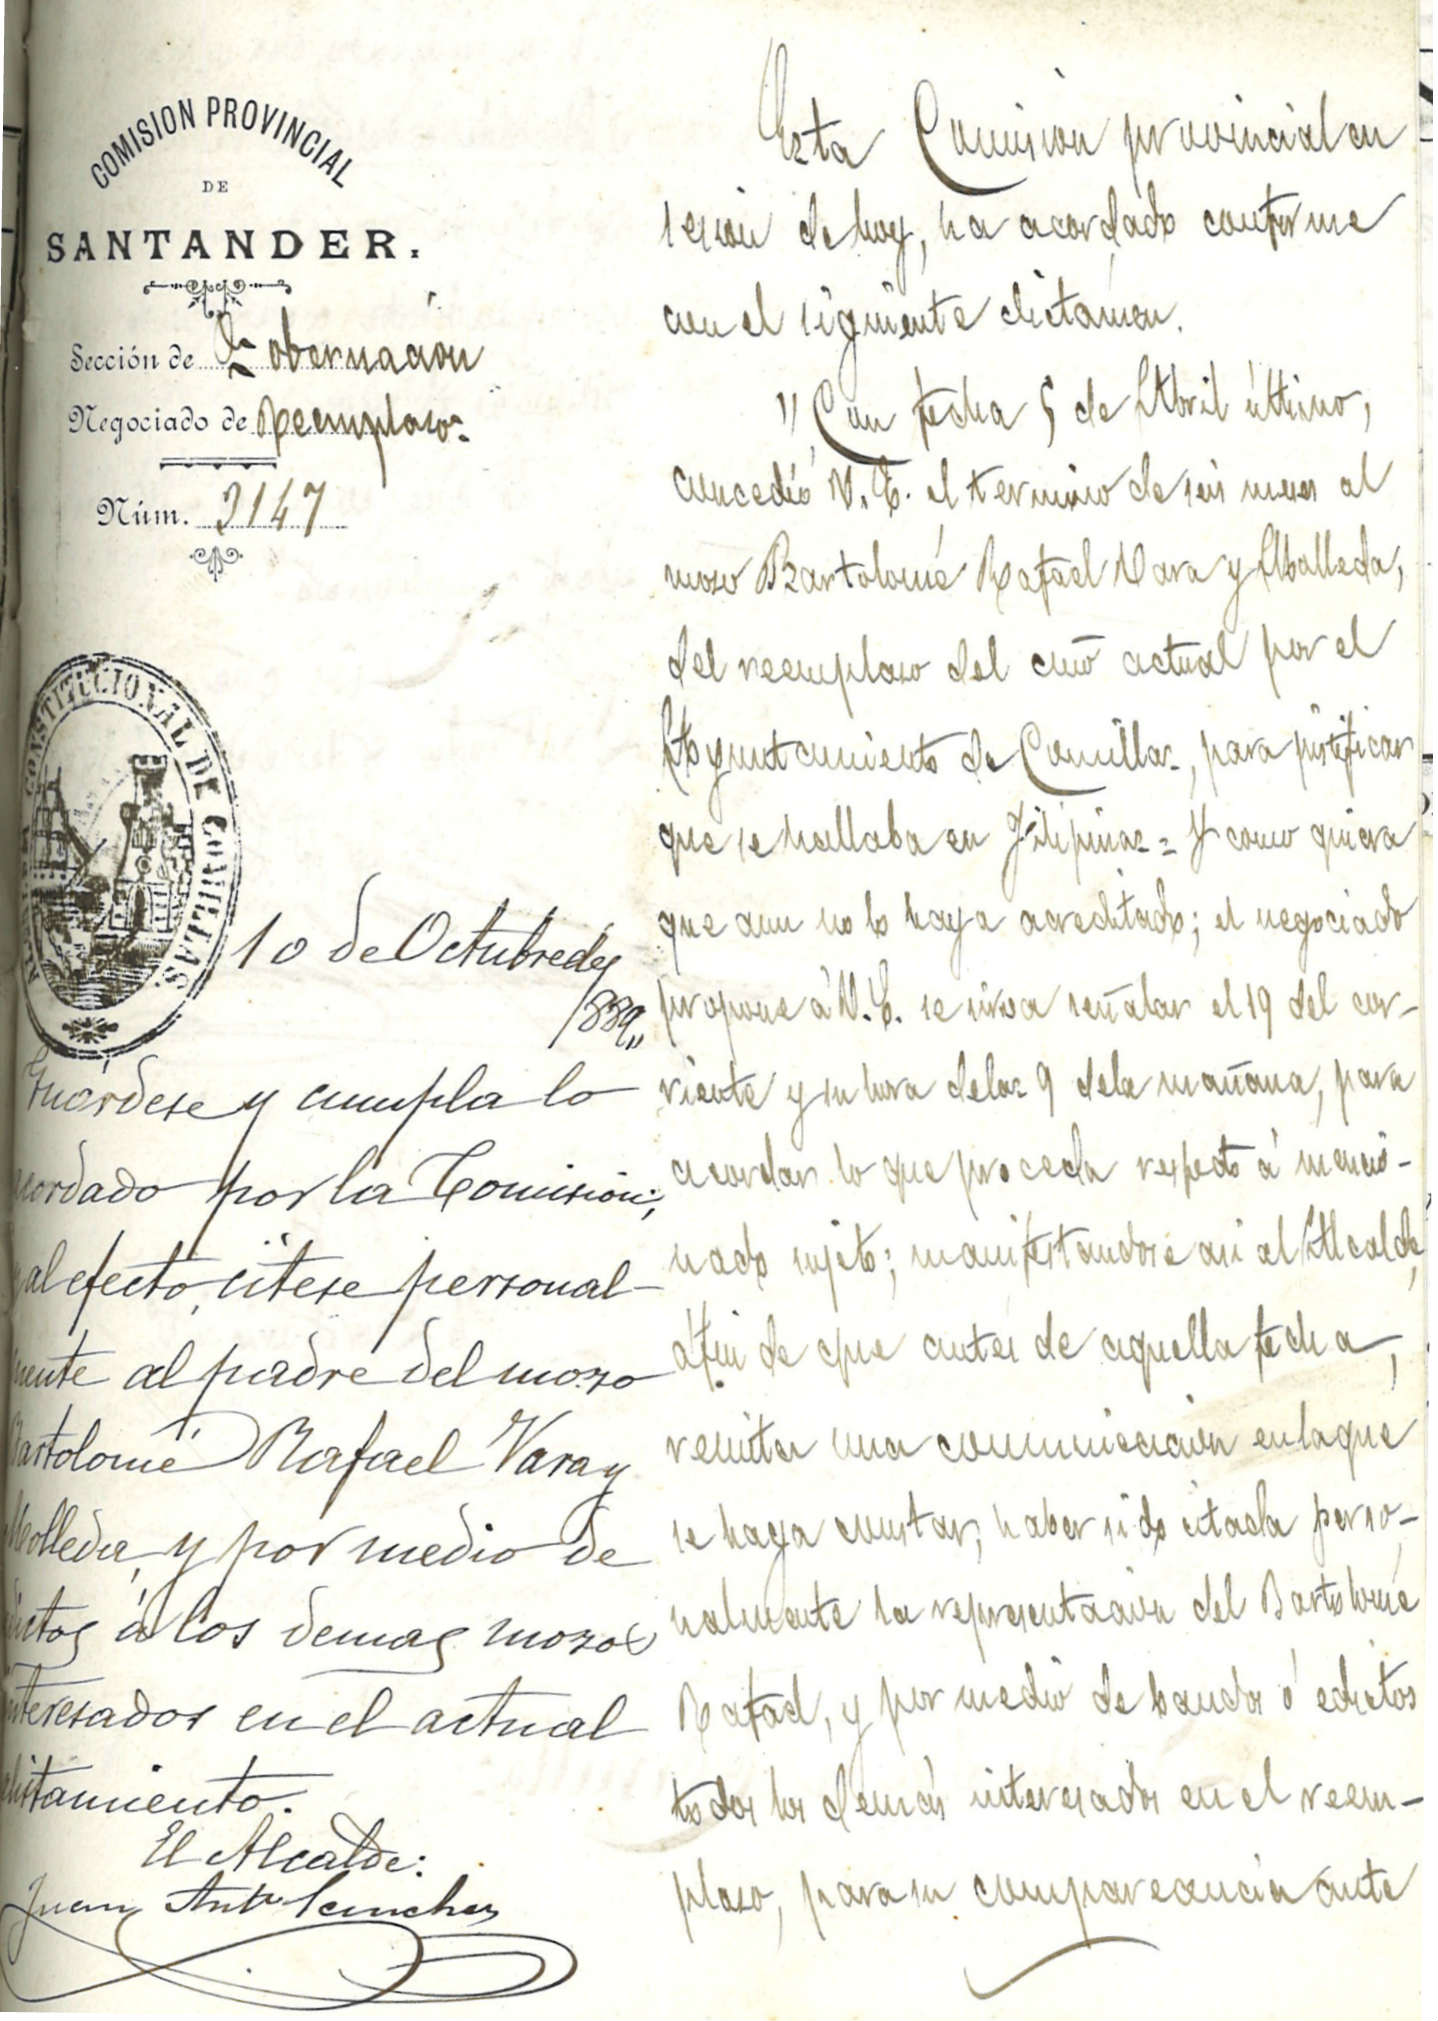 COMISION PROVINCIAL
DE
SANTANDER.
Sección de Gobernacion
Negociado de Reemplazos
Núm. 2147
ALCALDIA CONSTITUCIONAL DE COMILLAS
10 de Octubre de
1889,,
Guárdese y cumpla lo
acordado por la Comision;
y al efecto, citese personal-
mente al padre del mozo
Bartolomé Rafael Vara y
Molleda, y por medio de
edictos á los demas mozos
interesados en el actual
alistamiento.
El Alcalde:
Juan Antº Sanchez
Esta Comision provincial en
sesion de hoy, ha acordado conforme
con el siguiente dictámen.
"Con fecha 5 de Abril último,
concedió V. E. el termino de seis meses al
mozo Bartolomé Rafael Vara y Molleda,
del reemplazo del año actual por el
Ayuntamiento de Comillas, para justificar
que se hallaba en Filipinas = Y como quiera
que aun no lo haya acreditado; el negociado
propone á V. E. se sirva señalar el 19 del cor-
riente y su hora de las 9 de la mañana, para
acordar lo que proceda respecto á mencio-
nado sujeto; manifestandose asi al Alcalde,
á fin de que antes de aquella fecha,
remita una comunicacion en la que
se haga constar, haber sido citada perso-
nalmente la representacion del Bartolomé
Rafael, y por medio de bandos ó edictos
todos los demás interesados en el reem-
plazo, para su comparecencia ante